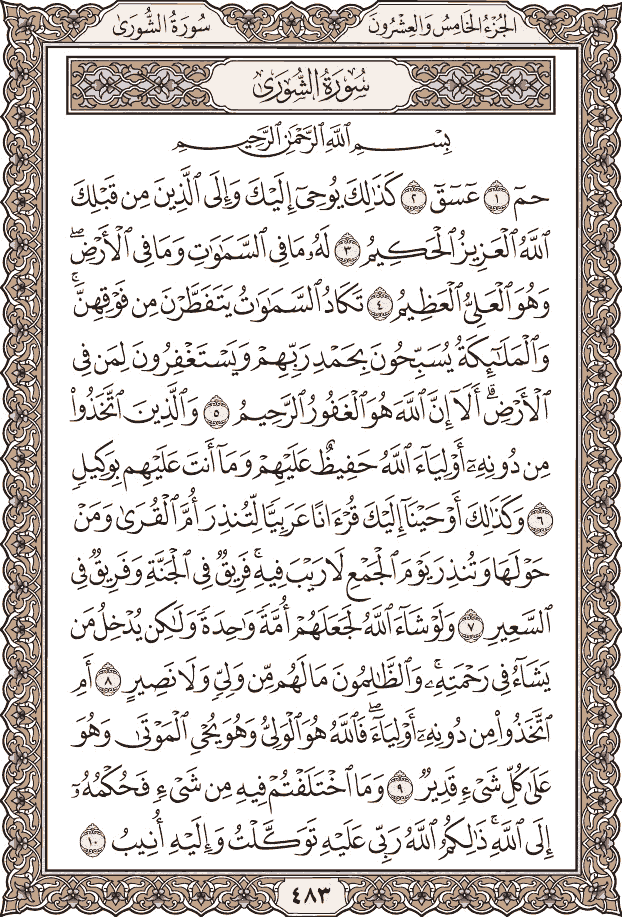 الجُزْءُ الخَامِسُ وَالعِشْرُونَ
سُورَةُ الشُّورَىٰ
سُورَةُ الشُّورَىٰ
بِسْمِ ٱللَّهِ ٱلرَّحْمَٰنِ ٱلرَّحِيمِ
حمٓ ١ عٓسٓقٓ ٢ كَذَٰلِكَ يُوحِىٓ إِلَيْكَ وَإِلَى ٱلَّذِينَ مِن قَبْلِكَ
ٱللَّهُ ٱلْعَزِيزُ ٱلْحَكِيمُ ٣ لَهُۥ مَا فِى ٱلسَّمَٰوَٰتِ وَمَا فِى ٱلْأَرْضِۖ
وَهُوَ ٱلْعَلِىُّ ٱلْعَظِيمُ ٤ تَكَادُ ٱلسَّمَٰوَٰتُ يَتَفَطَّرْنَ مِن فَوْقِهِنَّۚ
وَٱلْمَلَٰٓئِكَةُ يُسَبِّحُونَ بِحَمْدِ رَبِّهِمْ وَيَسْتَغْفِرُونَ لِمَن فِى
ٱلْأَرْضِۗ أَلَآ إِنَّ ٱللَّهَ هُوَ ٱلْغَفُورُ ٱلرَّحِيمُ ٥ وَٱلَّذِينَ ٱتَّخَذُوا۟
مِن دُونِهِۦٓ أَوْلِيَآءَ ٱللَّهُ حَفِيظٌ عَلَيْهِمْ وَمَآ أَنتَ عَلَيْهِم بِوَكِيلٍ
٦ وَكَذَٰلِكَ أَوْحَيْنَآ إِلَيْكَ قُرْءَانًا عَرَبِيًّا لِّتُنذِرَ أُمَّ ٱلْقُرَىٰ وَمَنْ
حَوْلَهَا وَتُنذِرَ يَوْمَ ٱلْجَمْعِ لَا رَيْبَ فِيهِۚ فَرِيقٌ فِى ٱلْجَنَّةِ وَفَرِيقٌ فِى
ٱلسَّعِيرِ ٧ وَلَوْ شَآءَ ٱللَّهُ لَجَعَلَهُمْ أُمَّةً وَٰحِدَةً وَلَٰكِن يُدْخِلُ مَن
يَشَآءُ فِى رَحْمَتِهِۦۚ وَٱلظَّٰلِمُونَ مَا لَهُم مِّن وَلِىٍّ وَلَا نَصِيرٍ ٨ أَمِ
ٱتَّخَذُوا۟ مِن دُونِهِۦٓ أَوْلِيَآءَۖ فَٱللَّهُ هُوَ ٱلْوَلِىُّ وَهُوَ يُحْىِ ٱلْمَوْتَىٰ وَهُوَ
عَلَىٰ كُلِّ شَىْءٍ قَدِيرٌ ٩ وَمَا ٱخْتَلَفْتُمْ فِيهِ مِن شَىْءٍ فَحُكْمُهُۥٓ
إِلَى ٱللَّهِۚ ذَٰلِكُمُ ٱللَّهُ رَبِّى عَلَيْهِ تَوَكَّلْتُ وَإِلَيْهِ أُنِيبُ ١٠
٤٨٣